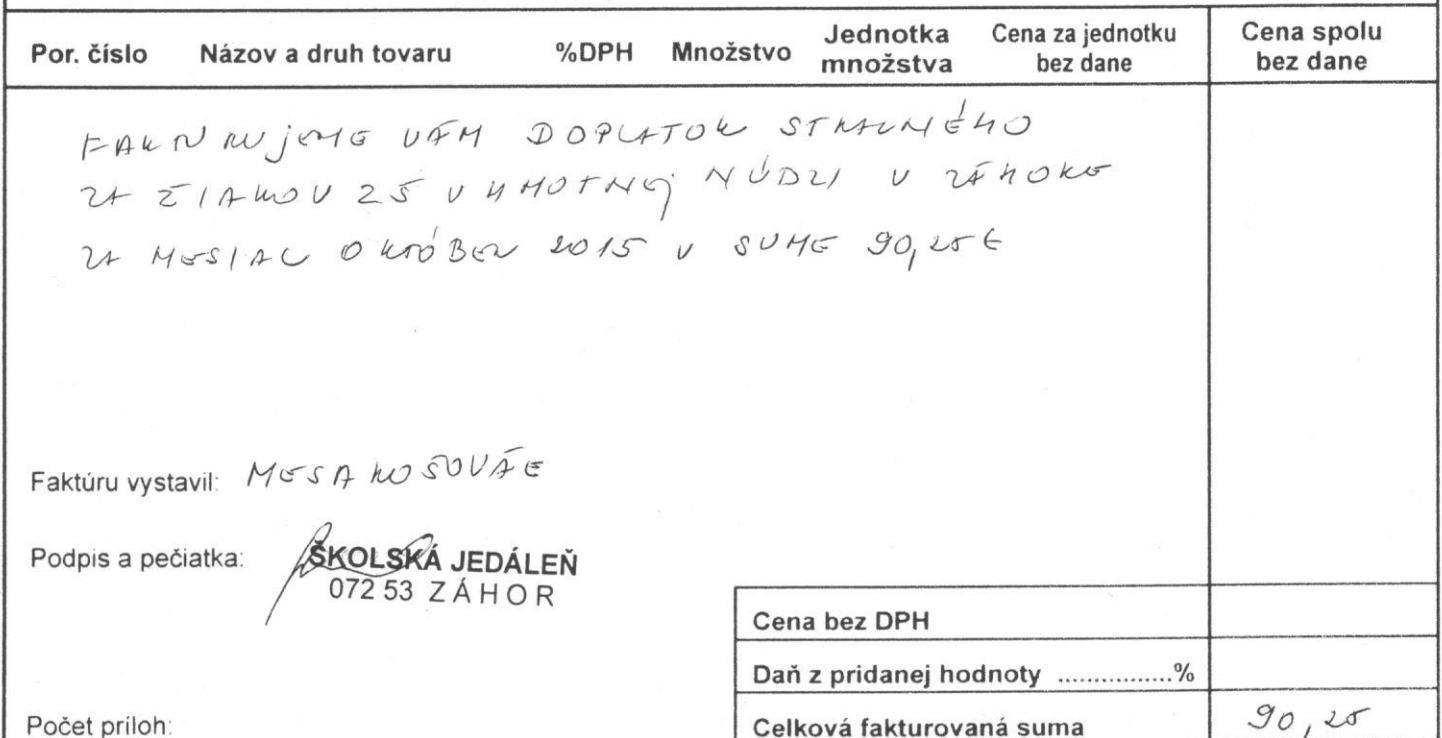 Por. číslo Názov a druh tovaru %DPH Množstvo Jednotka množstva Cena za jednotku bez dane Cena spolu bez dane
FAKTURUJEME VÁM DOPLATOK STRAVNÉHO
ZA ŽIAKOV ZŠ V HMOTNEJ NÚDZI V ZÁHORE
ZA MESIAC OKTÓBER 2015 V SUME 90,25 €
Faktúru vystavil:
Podpis a pečiatka: ŠKOLSKÁ JEDÁLEŇ
072 53 ZÁHOR
Cena bez DPH
Daň z pridanej hodnoty ................%
Počet príloh: Celková fakturovaná suma 90,25